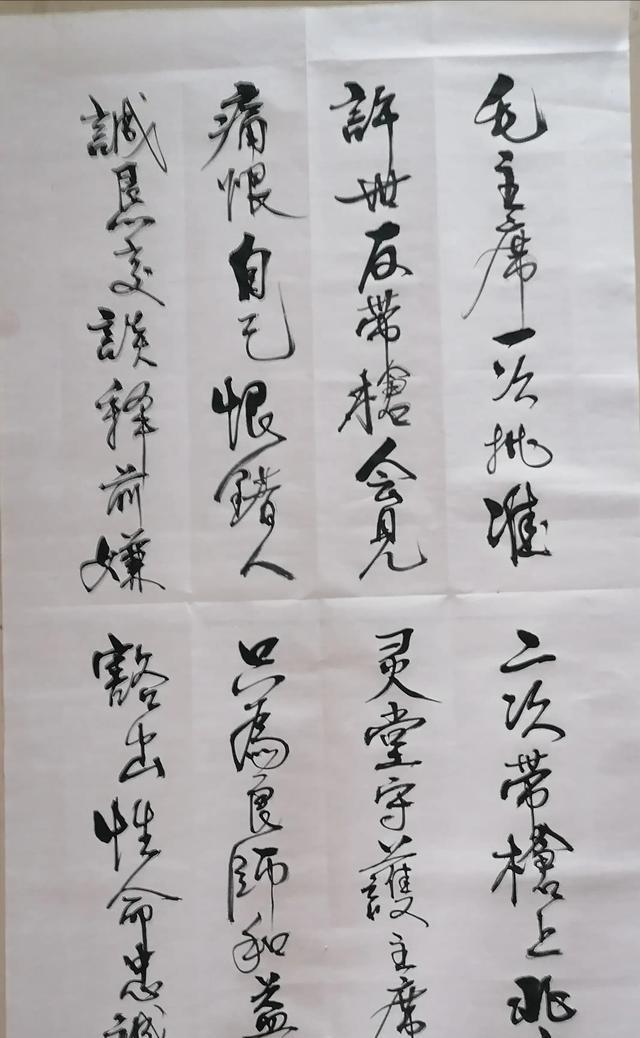 毛主席一次批准
許世友带槍会見
痛恨自己恨錯人
誠恳交談释前嫌
二次带槍上北
灵堂守護主席
只為良師和益
豁出性命忠誠